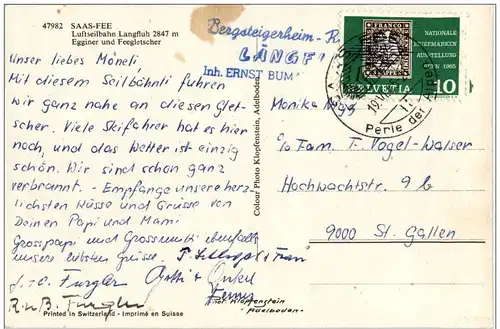 47982 SAAS-FEE
Luftseilbahn Langfluh 2847 m
Egginer und Feegletscher
Unser liebes Möneli,
Mit diesem Seilbähnli fuhren
wir ganz nahe an diesen Glet-
scher. Viele Skifahrer hat es hier
noch, und das Wetter ist einzig
schön. Wir sind schon ganz
verbrannt. - Empfange unsere herz-
lichsten Küsse und Grüsse von
Deinen Papi und Mami
Grosspapi und Grossmutti ebenfalls
unsere liebsten Grüsse.
Furgler
Götti & Onkel
R. u. B. Furgler
Printed in Switzerland - Imprimé en Suisse
Colour Photo Klopfenstein, Adelboden
Bergsteigerheim-R
LÄNGF
Inh. ERNST BUM
FRANCO
NATIONALE
BRIEFMARKEN
AUSSTELLUNG
BERN 1965
HELVETIA 10
Perle der Alpen
Monika
c/o Fam. F. Vogel-Walser
Hochwachtstr. 9 b
9000 St. Gallen
Phot. Klopfenstein
Adelboden.